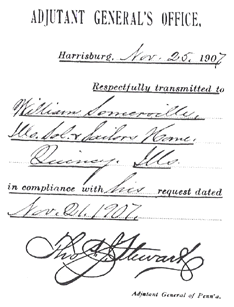 ADJUTANT GENERAL'S OFFICE,
Harrisburg, Nov. 25, 1907
Respectfully transmitted to
William Somerville,
Ills. Sol. & Sailors Home,
Quincy, Ills.
in compliance with his request dated
Nov. 21, 1907.
Thos. J. Stewart
Adjutant General of Penn'a.